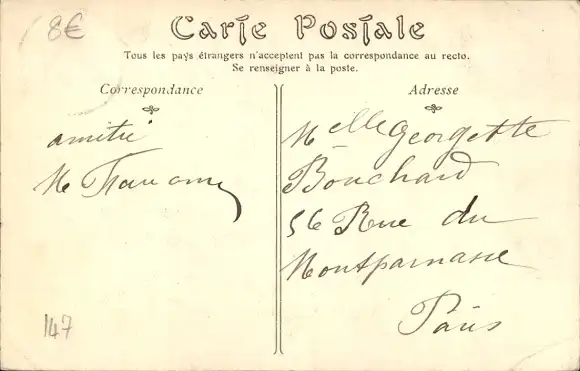 8€
Carte Postale
Tous les pays étrangers n'acceptent pas la correspondance au recto.
Se renseigner à la poste.
Correspondance
amitié
M
147
Adresse
Melle Georgette
Bouchard
56 Rue du
Montparnasse
Paris